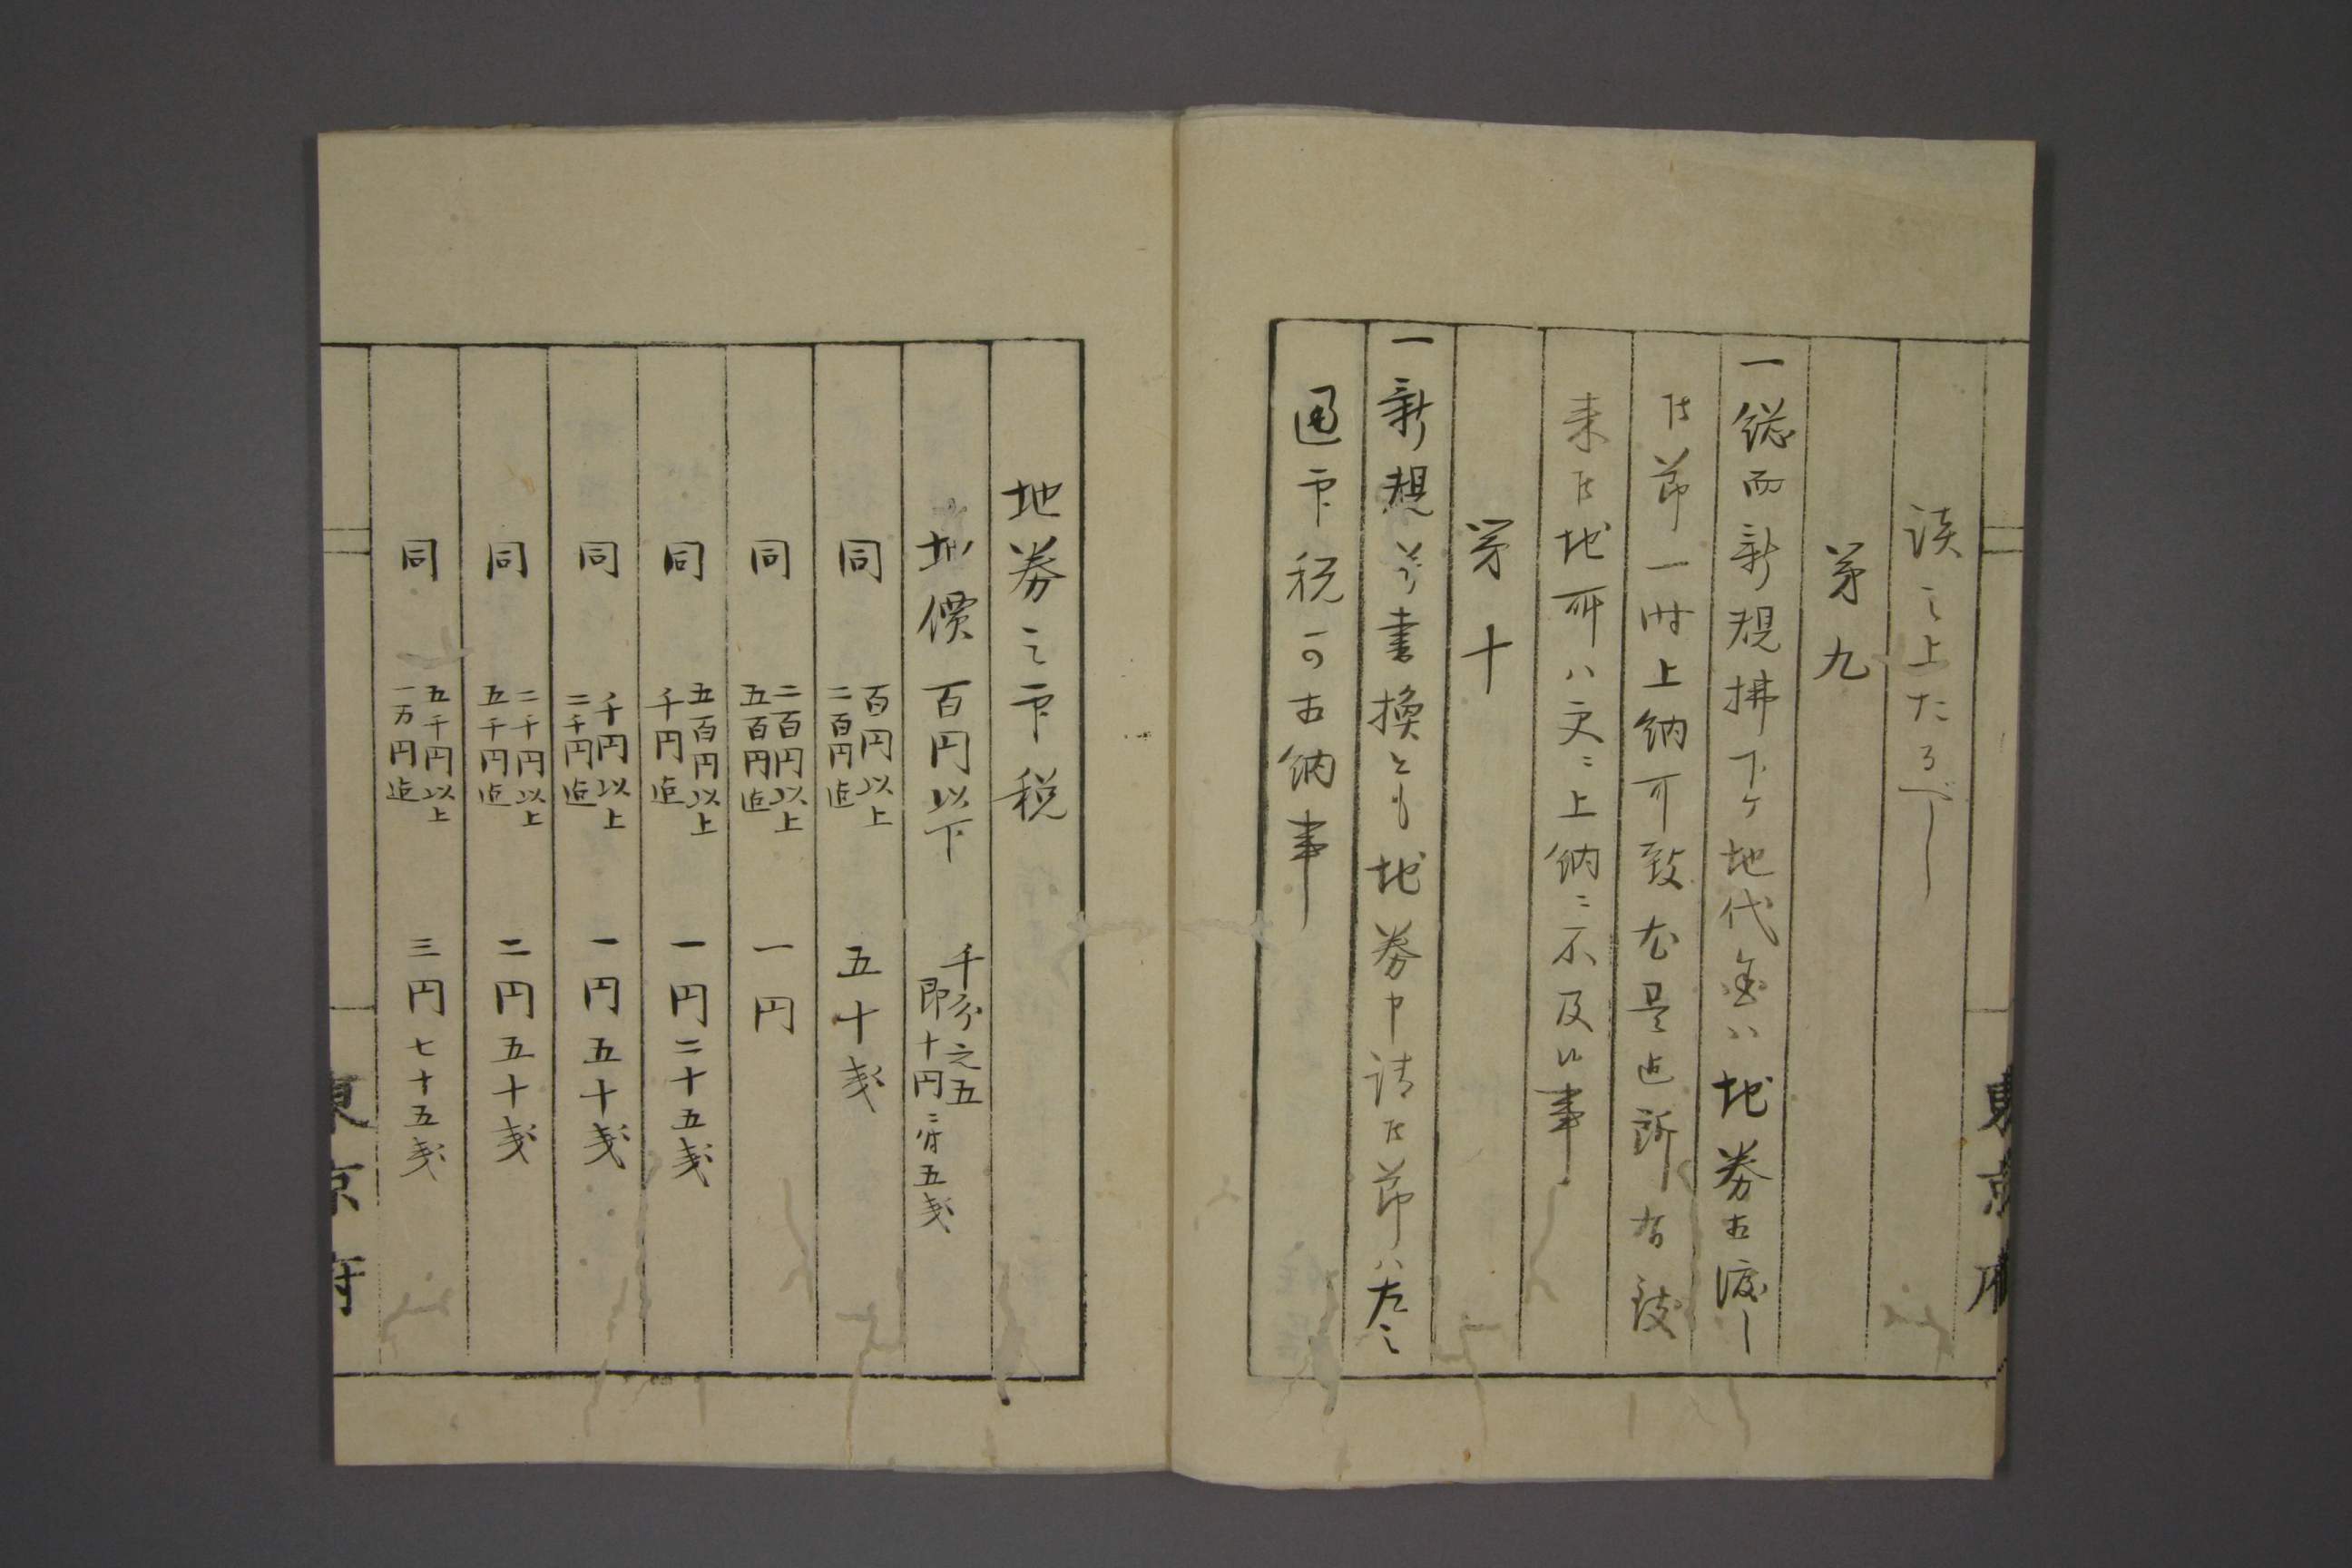 談之上たるべし
第九
一総而新規拂下ケ地代金ハ地券相渡し
候節一時上納可致尤是迠所有致
来候地所ハ更ニ上納ニ不及候事
第十
一新規並書換とも地券申請候節ハ左之
通印税可相納事
東京府
地券之印税
地價百円以下 千分之五即十円ニ付五銭
同 百円以上二百円迠 五十銭
同 二百円以上五百円迠 一円
同 五百円以上千円迠 一円二十五銭
同 千円以上二千円迠 一円五十銭
同 二千円以上五千円迠 二円五十銭
同 五千円以上一万円迠 三円七十五銭
東京府